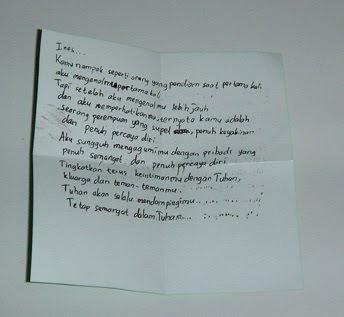 Ines...
Kamu nampak seperti orang yang pendiam saat pertama kali
aku mengenalmu pertama kal.
Tapi setelah aku mengenalmu lebih jauh
dan aku memperhatikanmu, ternyata kamu adalah
seorang perempuan yang supel, penuh keyakinan
dan penuh percaya diri.
Aku sungguh mengagumimu dengan pribadi yang
penuh semangat dan penuh percaya diri.
Tingkatkan terus keintimanmu dengan Tuhan,
kluarga dan teman-temanmu.
Tuhan akan selalu mendampingimu...
Tetap semangat dalam Tuhan...